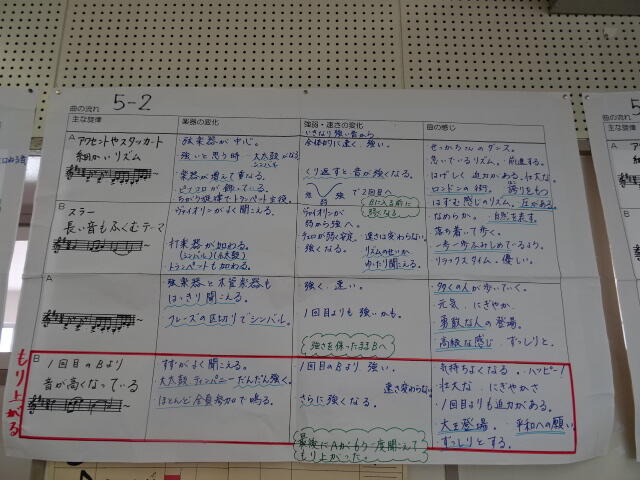 5-2
曲の流れ
主な旋律
楽器の変化
強弱・速さの変化
曲の感じ
A アクセントやスタッカート
細かいリズム
弦楽器が中心。
強いと思う時 大太鼓がなる
シンバル
楽器が増えて重なる。
ピッコロが
いきなり強い音から
全体的に速く、強い。
くり返すと音が強くなる。
強 弱 強 で2回目へ
Bに入る前に
弱くなる。
せっかちなダンス。
急いでいるリズム。前進する。
はげしく 迫力がある。壮大な。
ロンドンの街。誇りをもつ
はずむ感じのリズム。圧がある。
B スラー
長い音もふくむテーマ
ヴァイオリンがよく聞こえる。
打楽器が加わる。
(シンバル)(大太鼓)
トランペットも加わる。
ヴァイオリンが
弱から強へ。
強くなる。
速さは変わらない。
リズムのせいか
ゆったり聞こえる。
なめらか。自然を表す。
落ち着いて歩く。
一歩一歩ふみしめているよう。
リラックスタイム。優しい。
A
弦楽器と木管楽器も
はっきり聞こえる。
フレーズの区切りでシンバル。
強く、速い。
1回目よりも強いかも。
強さを保ったままBへ
多くの人が歩いていく。
元気、にぎやか
勇敢な人の登場。
高級な感じ ずっしりと。
もり上がる
B 1回目のBより
音が高くなっている
すずがよく聞こえる。
大太鼓 ティンパニー だんだん強く。
ほとんど全員参加で鳴る。
1回目のBより 強い。
速さ変わらない
さらに強くなる。
最後にAがもう一度聞こえて
もり上がった。
気持ちよくなる。ハッピー!
壮大な にぎやかさ
1回目よりも迫力がある。
大王登場。平和への願い
ずっしりとする。
曲の流れ
主な旋律
A
B
A
B